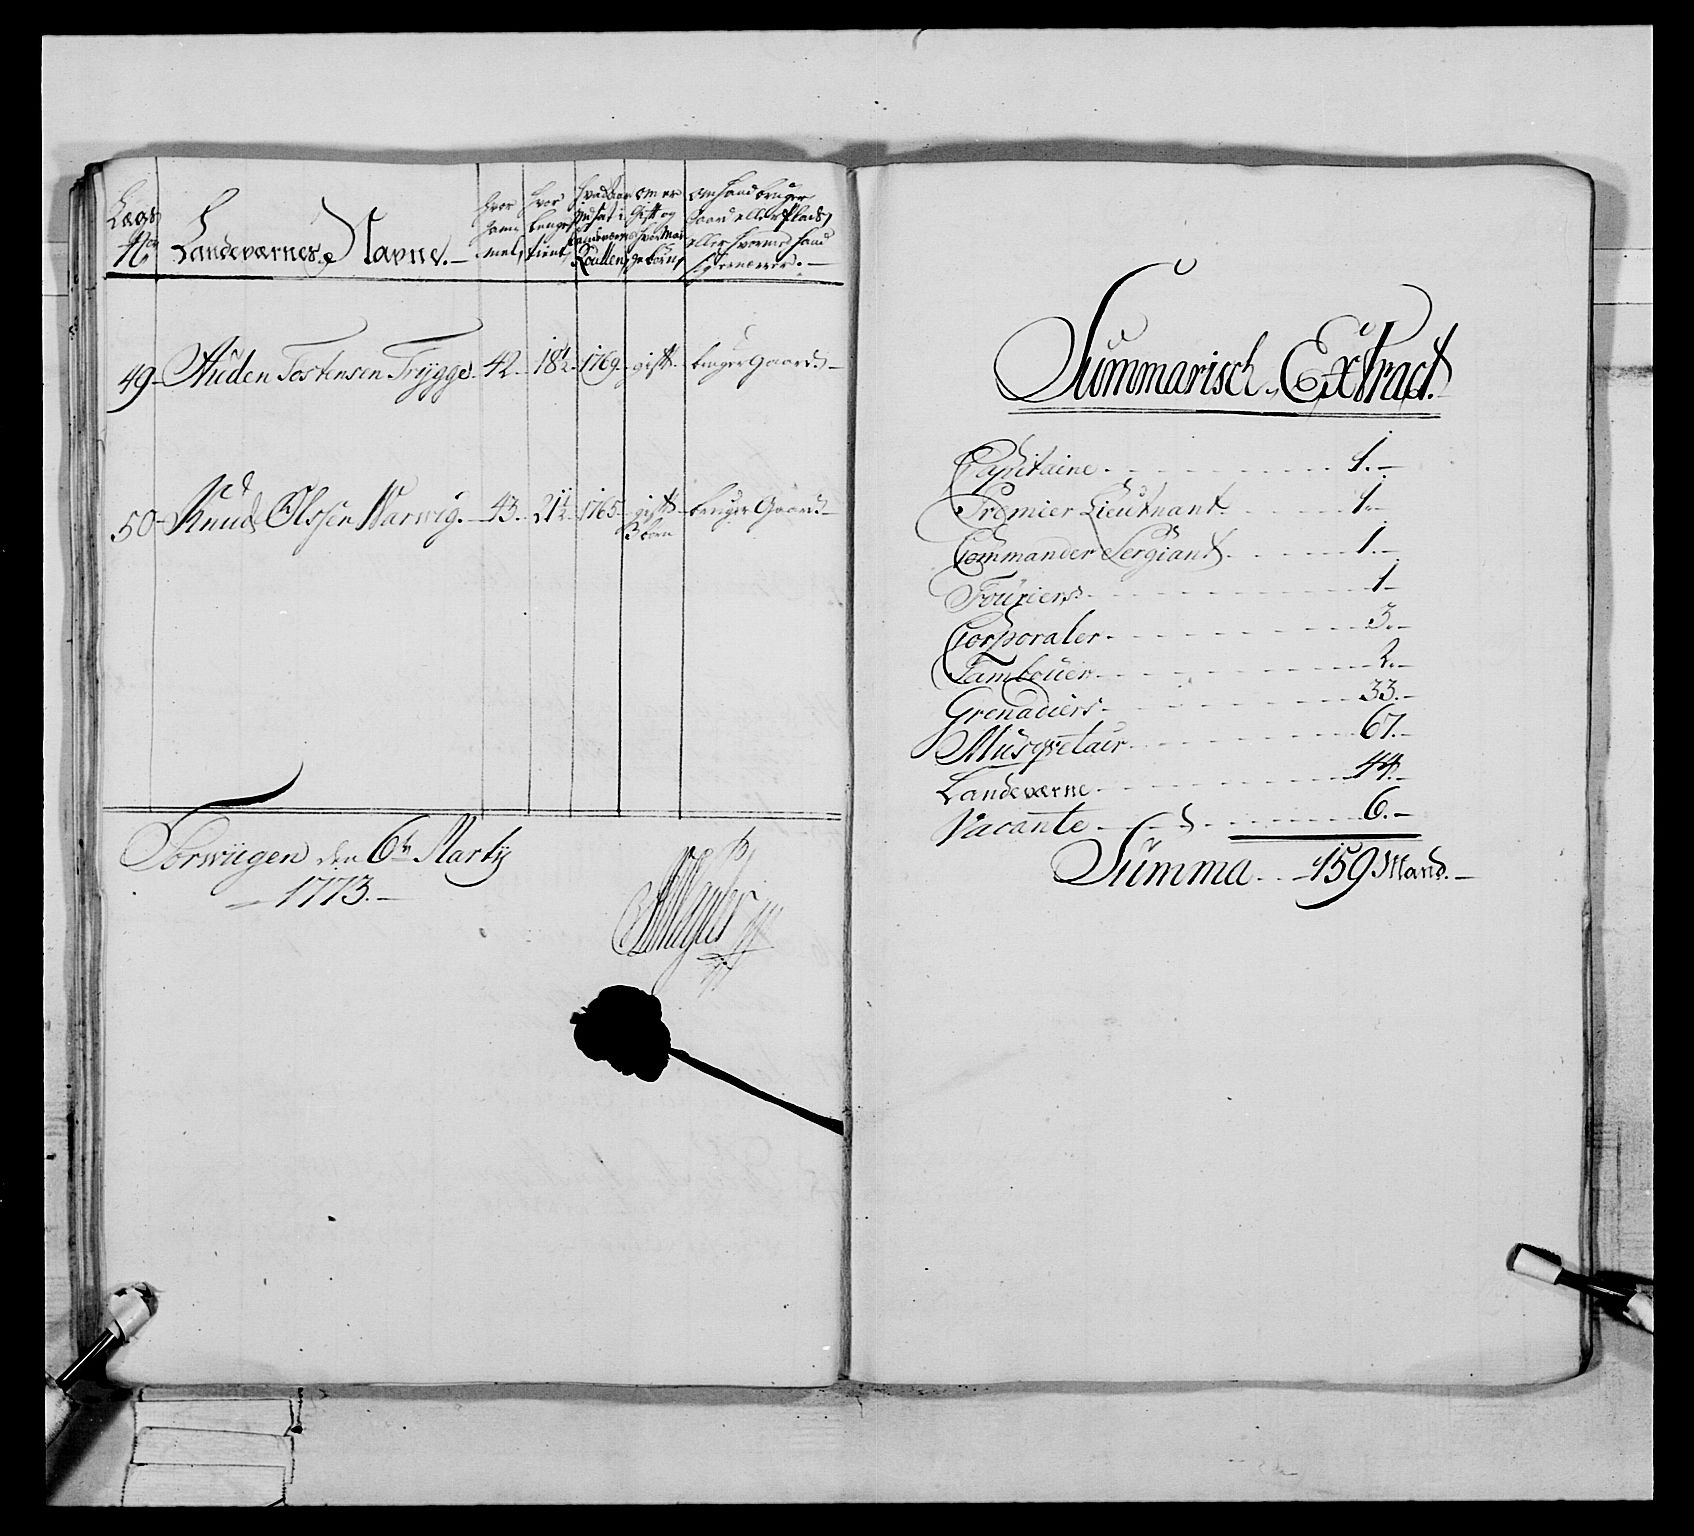 Lægs No
Landeværnes Navne.
hvor gammel,
hvor længe tient,
hvad aar indsat i Landeværns Roullen,
om er Gift og hvor mange børn,
om hand bruger Gaard eller Plads, eller hvormed hand sig ernærer.
49 - Auden Tostensen Trygge. 42. 18½. 1769. gift. bruger Gaard.
50 - Knud Olssen Narwig. 43. 21¼. 1765. gift 3 børn bruger Gaard.
den 6te Marty
1773.
Summarisch Extract.
Capitaine 1.
Premier Lieutnant 1.
Commander Sergiant 1.
Fouriers 1
Corporaler 3.
Tambouer 2.
Grenadiers 33.
Musqvetair 67.
Landeværne 44.
Vacante 6.
Summa 159 Mand.